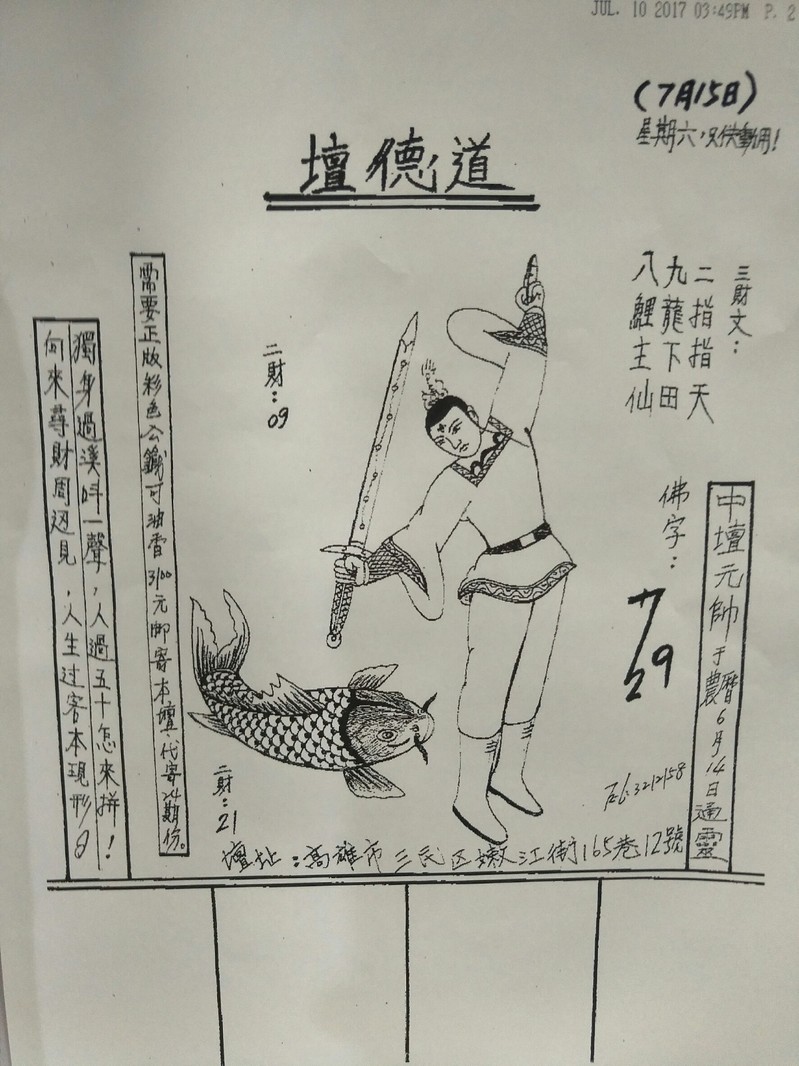 JUL. 10 2017 03:49PM P. 2
(7月15日)
星期六,只供參用!
壇德道
三財文:
二指指天
九龍下田
八鯉主仙
佛字:
29
中壇元帥于農曆6月14日通靈
Tel:3212158
二財:09
二財:21
需要正版彩色公籤可油香3100元即寄本壇,代寄24期份。
獨身過溪叫一聲,人過五十怎來拼!
向來尋財周迊見,人生过客本現形
壇址:高雄市三民区嫩江街165巷12號